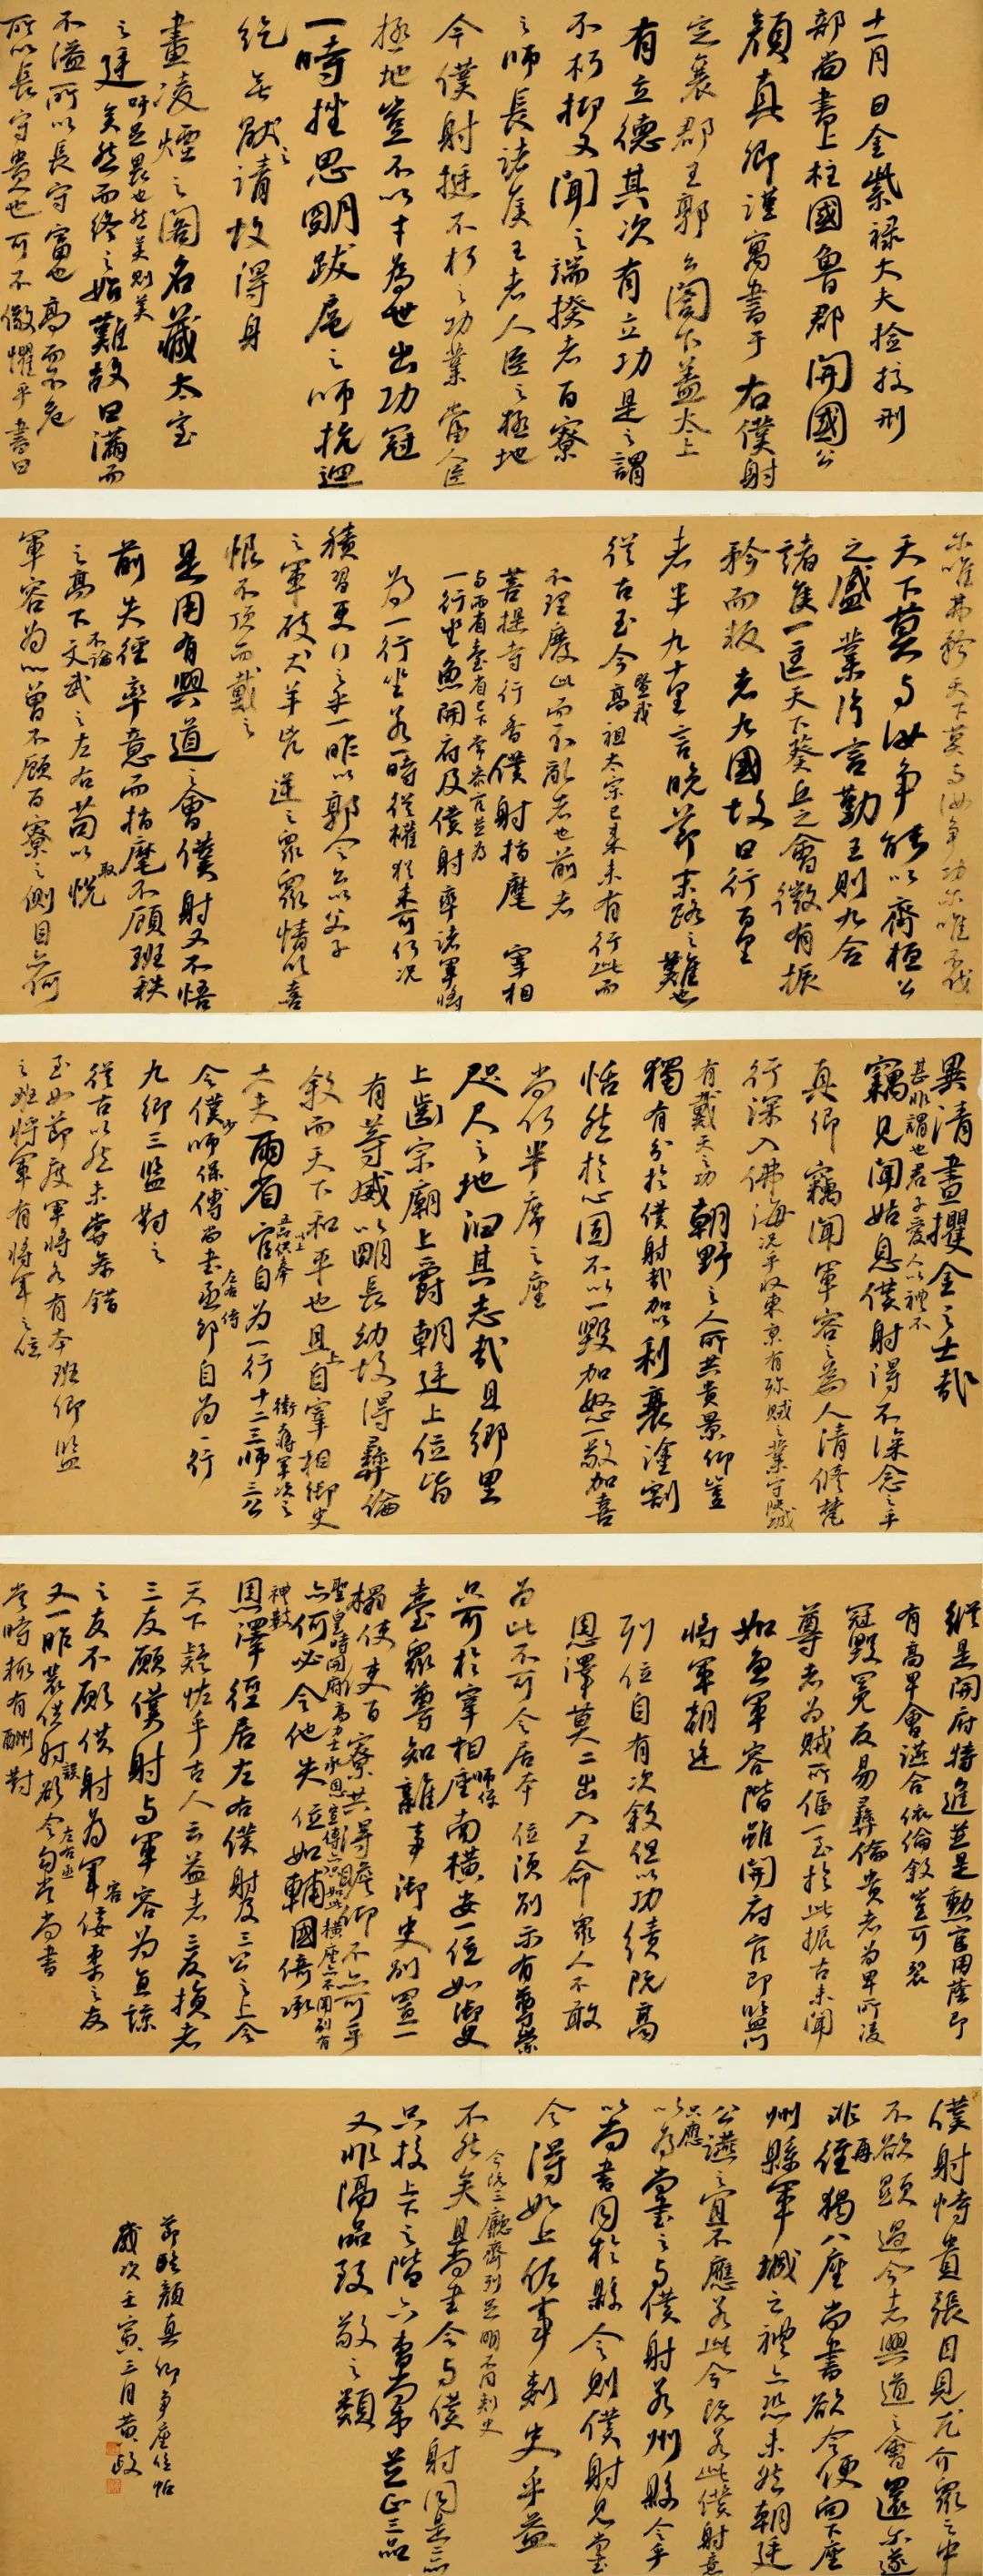 十一月日金紫禄大夫捡挍刑
部尚書上柱國魯郡開國公
顔真卿謹寓書于右僕射
定襄郡王郭公閤下盖太上
有立德其次有立功是之謂
不朽抑又聞之端揆者百寮
之師長諸侯王者人臣之極地
今僕射挺不朽之功業當人臣
極地豈不以才為世出功冠
一時挫思明跋扈之師抗迴
紇無厭之請故得身
畫凌煙之閣名藏太室
之廷吁足畏也然美則美
矣然而終之始難故曰滿而
不溢所以長守富也高而不危
所以長守貴也可不儆懼乎書曰
尔唯弗矜天下莫与汝争功尔唯不伐
天下莫与汝争能以齊桓公
之盛業片言勤王則九合
諸侯一匡天下葵丘之會微有振
矜而叛者九國故曰行百里
者半九十里言晚節末路之難也
從古至今曁我高祖太宗已来未有行此而
不理廢此而不亂者也前者
菩提寺行香僕射指麾宰相
与兩省臺省已下常参官並為
一行坐魚開府及僕射率諸軍將
為一行坐若一時從權猶未可何况
積習更行之乎一昨以郭令公以父子
之軍破犬羊兇逆之衆衆情以喜
恨不頂而戴之
是用有興道之會僕射又不悟
前失徑率意而指麾不顧班秩
之高下不論文武之左右苟以取悦
軍容為心曾不顧百寮之側目亦何
異清晝攫金之士哉
甚非謂也君子愛人以禮不
竊見聞姑息僕射得不深念之乎
真卿竊聞軍容之為人清修梵
行深入佛海况乎收東京有殄賊之業守陜城
有戴天之功朝野之人所共貴景仰豈
獨有分於僕射哉加以利衰塗割
恬然於心固不以一毁加怒一敬加喜
尚何半席之座
咫尺之地汩其志哉且鄉里
上齒宗廟上爵朝廷上位皆
有等威以明長幼故得彝倫
敘而天下和平也且上自宰相御史
大夫兩省五品以上供奉官自為一行十二衛大將軍次之三師三公
令僕少師保傅尚書左右丞侍郎自為一行
九卿三监對之
從古以然未嘗参錯
至如節度軍將各有本班卿监
之班將軍有將軍之位
縱是開府特進並是勳官用蔭即
有高卑會讌合依倫敘豈可裂
冠毁冕反易彝倫貴者為卑所凌
尊者為賊所偪一至於此振古未聞
如魚軍容階雖開府官即监門
將軍朝廷
列位自有次敘但以功績既高
恩澤莫二出入王命衆人不敢
為此不可令居本位須別示有尊崇
只可於宰相師保座南横安一位如御史
臺衆尊知雜事御史別置一
榻使使百寮共得瞻仰不亦可乎
聖皇時開府高力士承恩宣傳亦只如此横座亦不聞別有
禮數亦何必令他失位如輔國倚承
恩澤徑居左右僕射及三公之上令
天下疑怪乎古人云益者三友損者
三友願僕射与軍容為直諒
之友不願僕射為軍容佞柔之友
又一昨裴僕射誤欲令左右丞勾當尚書
當時輒有酬對
僕射恃貴張目見尤介衆之中
不欲顯過今者興道之會還尔遂
非再徑猖八座尚書欲令便向下座
州縣軍城之禮亦恐未然朝廷
公讌之宜不應若此今既若此僕射意
只應以為尚書之与僕射若州縣令乎
以尚書同於縣令則僕射見尚書
令得如上佐事刺史乎益
不然矣今既三廳齊列足明不同刺史
且尚書令与僕射同是二品
只挍上下之階六曹尚書並正三品
又非隔品致敬之類
節臨顔真卿争座位帖
歲次壬寅三月黄政